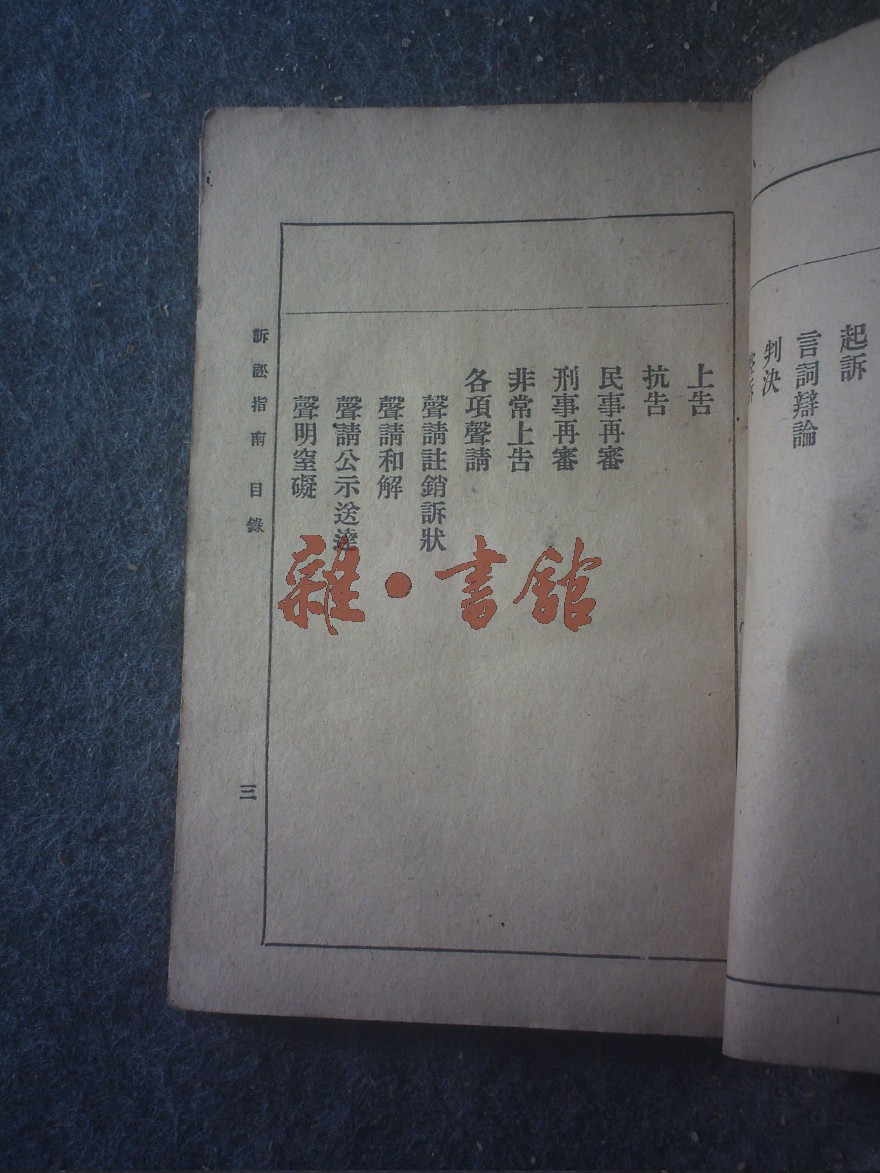 起訴
言詞辯論
判決
上告
抗告
民事再審
刑事再審
非常上告
各項聲請
聲請註銷訴狀
聲請和解
聲請公示送達
聲明窒礙
訴訟指南 目錄
三
雜·書館